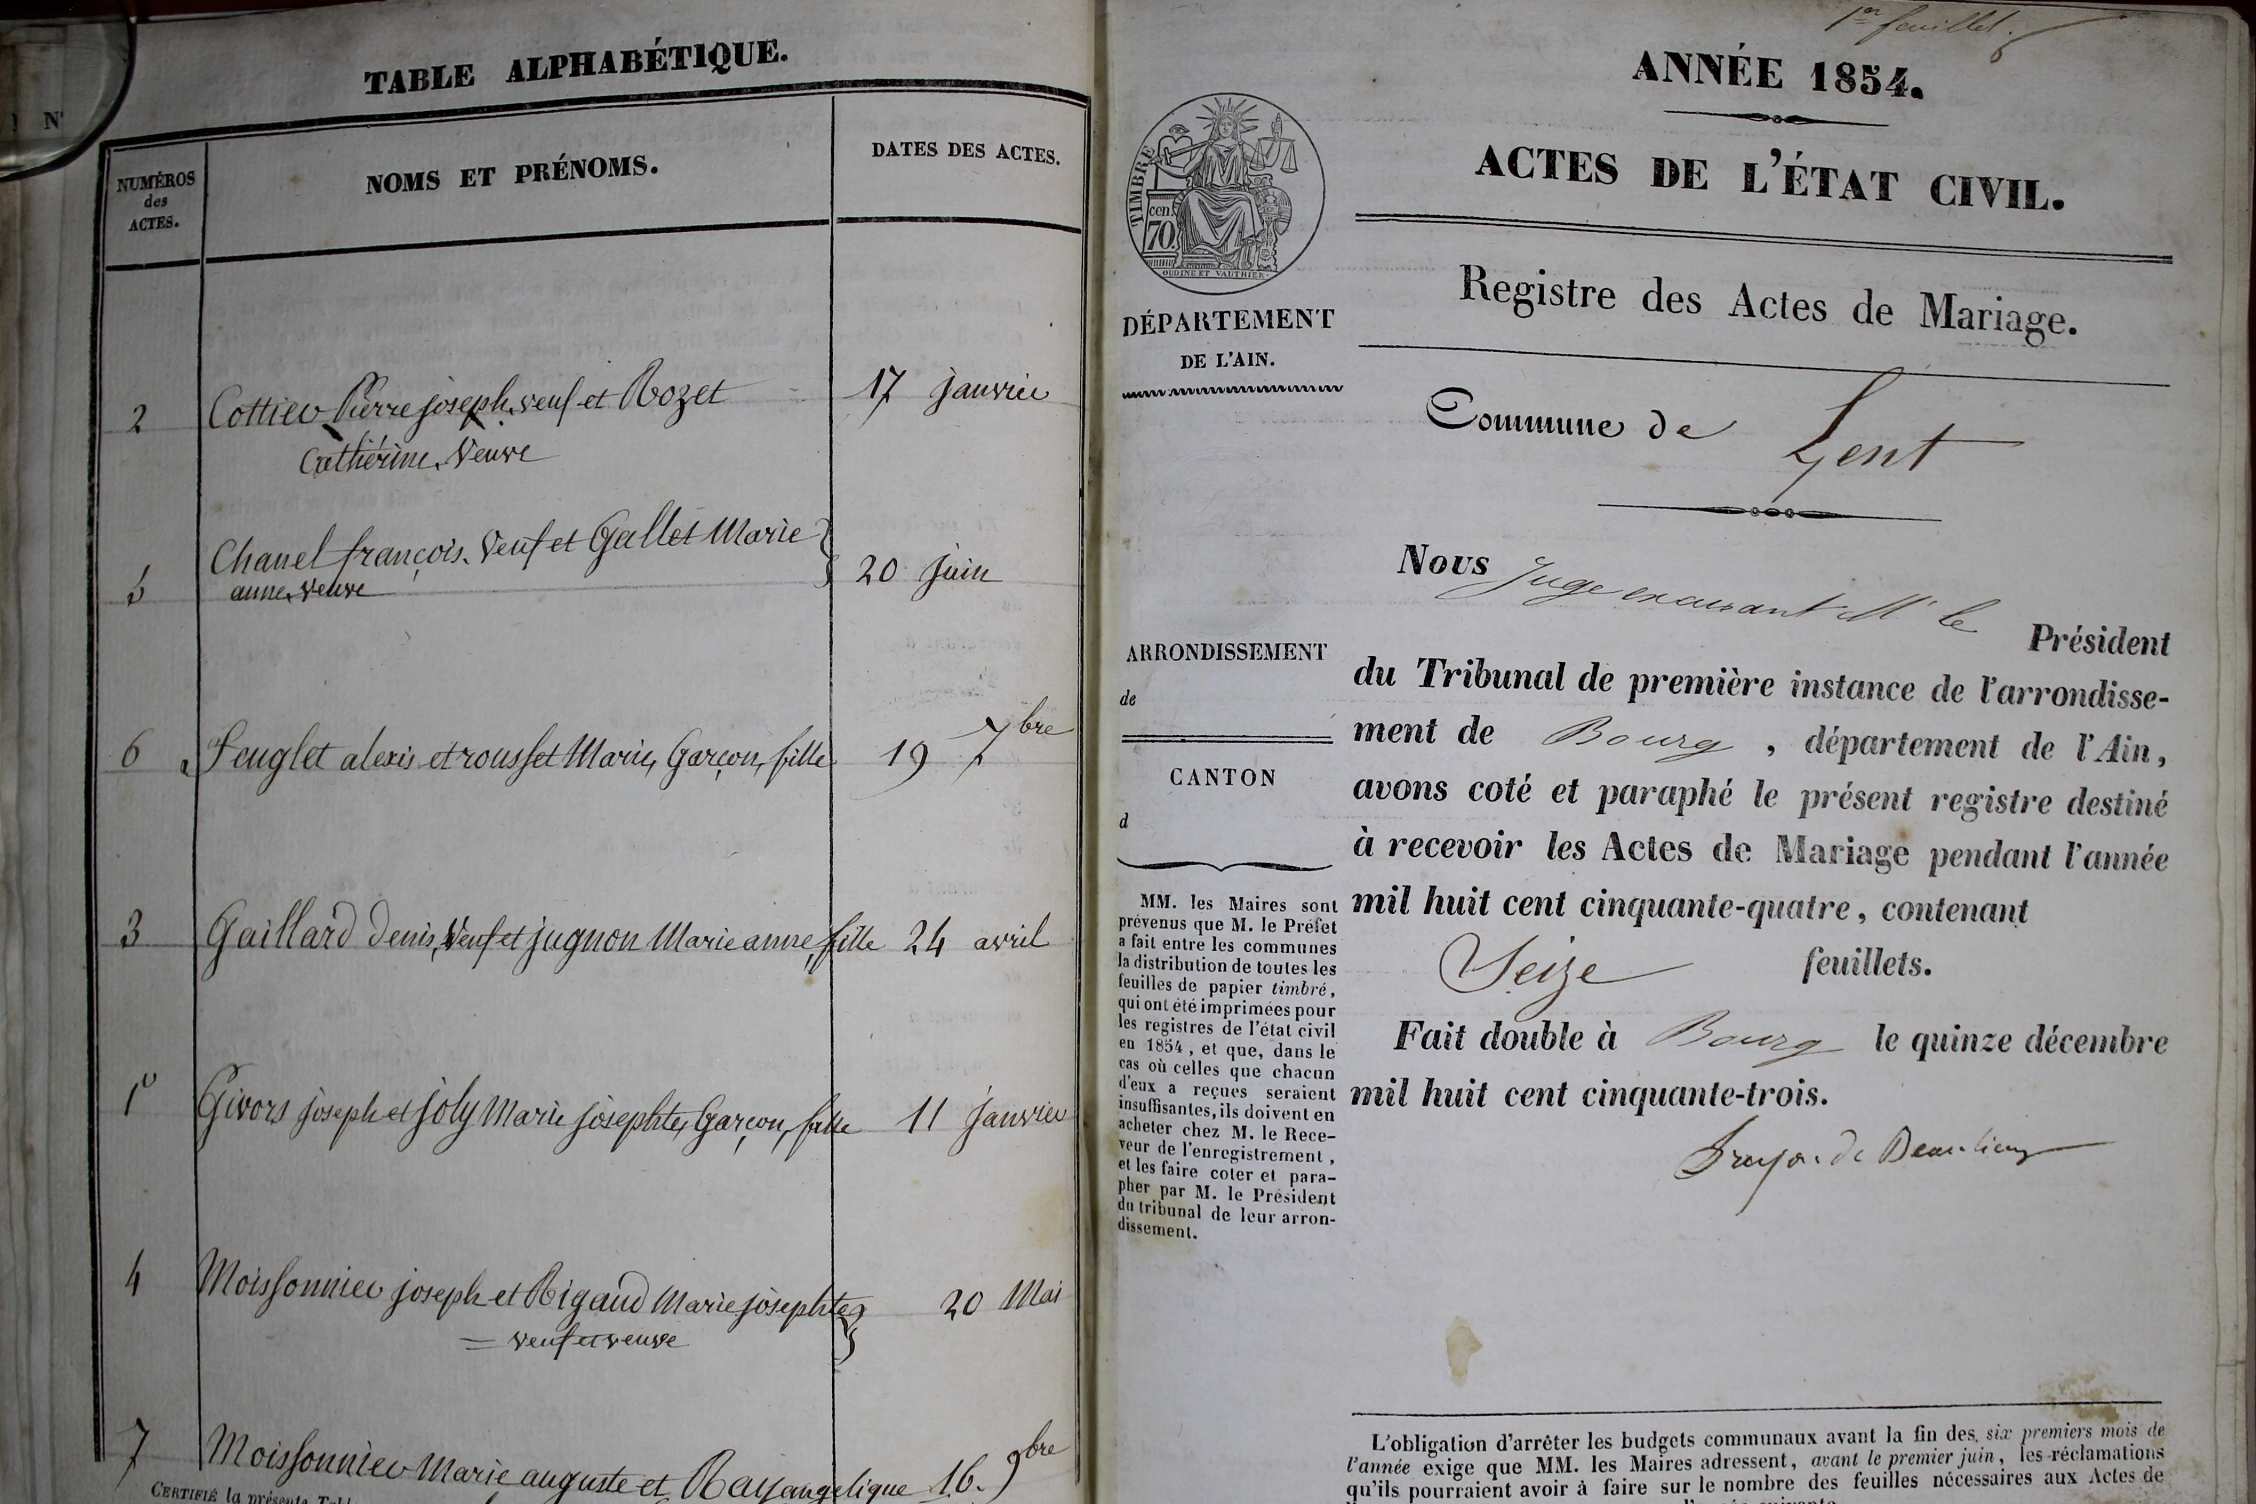 N°
TABLE ALPHABÉTIQUE.
NUMÉROS
des
ACTES.
NOMS ET PRÉNOMS.
DATES DES ACTES.
2 Cottier Pierre joseph, veuf et Rozet 17 janvier
Catherine, Veuve
5 Chanel françois, Veuf et Gallet Marie 20 juin
anne, veuve
6 Feuglet alexis et rousset Marie, Garçon, fille 19 7bre
3 Gaillard denis, Veuf et jugnon Marie anne, fille 24 avril
1er Givors joseph et joly Marie josephte, Garçon, fille 11 janvier
4 Moissonnier joseph et Rigaud Marie josephte 20 Mai
= veuf et veuve
7 Moissonnier Marie auguste et Ray angelique 16. 9bre
CERTIFIÉ la présente
1er feuillet.
ANNÉE 1854.
ACTES DE L'ÉTAT CIVIL.
TIMBRE
70 cen.
OUDINE ET VAUTHIER.
Registre des Actes de Mariage.
DÉPARTEMENT
DE L'AIN.
Commune de Lent
Nous Juge excusant Mr le Président
du Tribunal de première instance de l'arrondisse-
ment de Bourg, département de l'Ain,
avons coté et paraphé le présent registre destiné
à recevoir les Actes de Mariage pendant l'année
mil huit cent cinquante-quatre, contenant
Seize feuillets.
Fait double à Bourg le quinze décembre
mil huit cent cinquante-trois.
de Beaulieu
ARRONDISSEMENT
de
CANTON
d
MM. les Maires sont
prévenus que M. le Préfet
a fait entre les communes
la distribution de toutes les
feuilles de papier timbré,
qui ont été imprimées pour
les registres de l'état civil
en 1854, et que, dans le
cas où celles que chacun
d'eux a reçues seraient
insuffisantes, ils doivent en
acheter chez M. le Rece-
veur de l'enregistrement,
et les faire coter et para-
pher par M. le Président
du tribunal de leur arron-
dissement.
L'obligation d'arrêter les budgets communaux avant la fin des six premiers mois de
l'année exige que MM. les Maires adressent, avant le premier juin, les réclamations
qu'ils pourraient avoir à faire sur le nombre des feuilles nécessaires aux Actes de